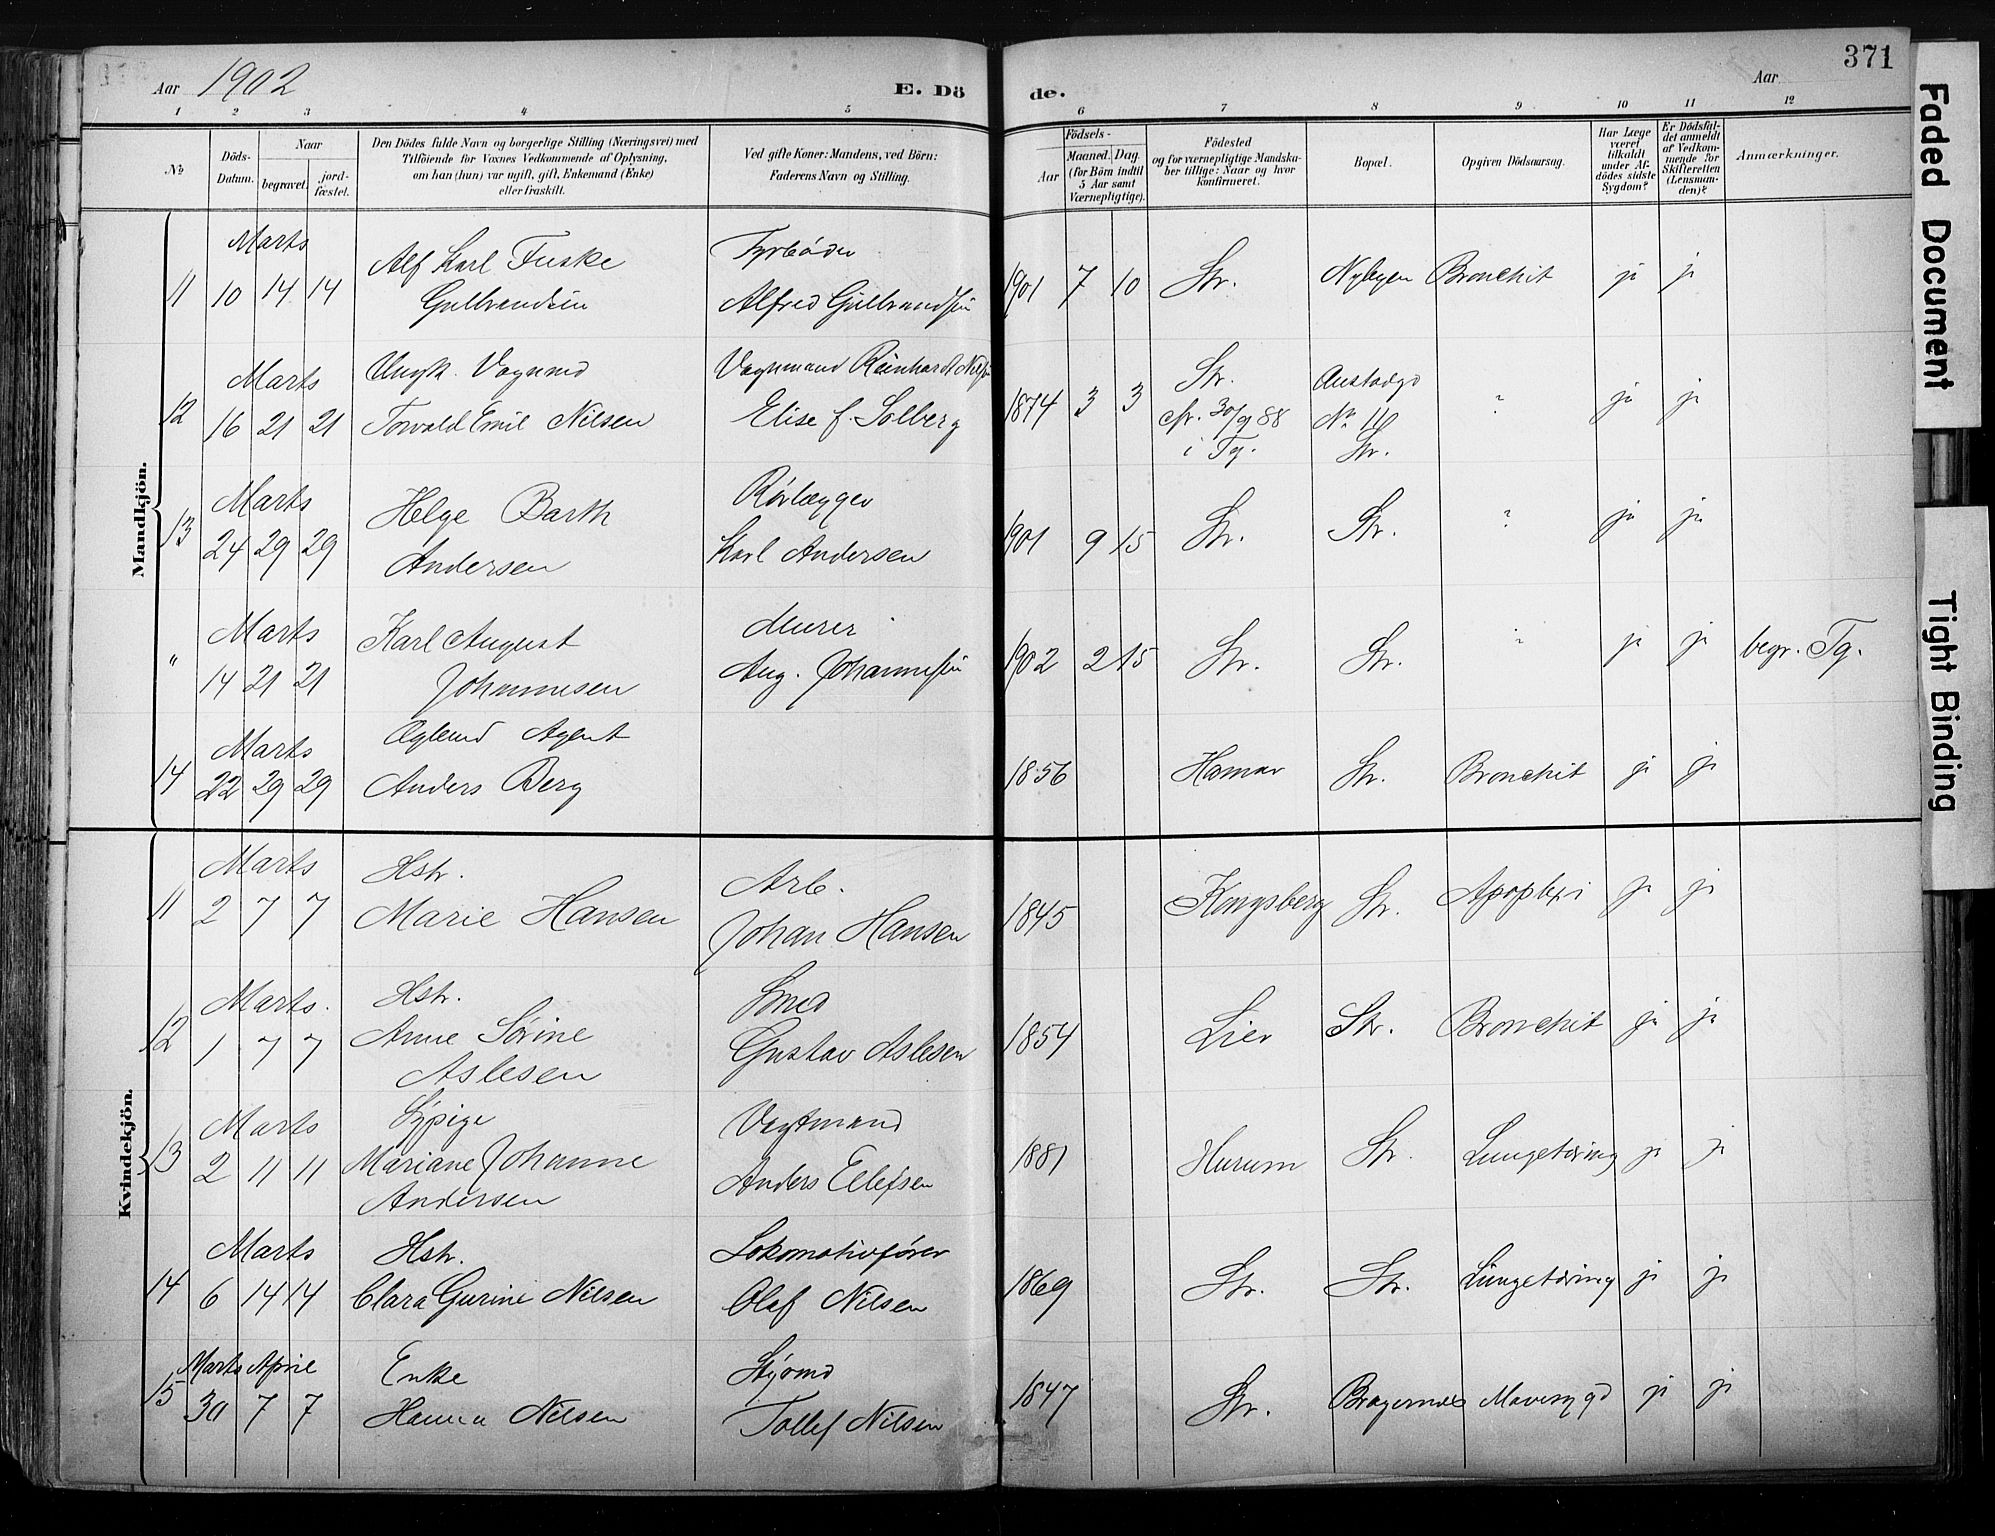 Aar 1902
E. Dö
de.
Aar
371
1 2 3 4 5 6 7 8 9 10 11 12
No
Döds-Datum.
Naar
begravet.
jord-fæstet.
Den Dödes fulde Navn og borgerlige Stilling (Næringsvei) med
Tilföiende for Voxnes Vedkommende af Oplysning,
om han (hun) var ugift, gift, Enkemand (Enke)
eller fraskilt.
Ved gifte Koner: Mandens, ved Börn:
Faderens Navn og Stilling.
Födsels-
Aar
Maaned. Dag.
(for Börn indtil
5 Aar samt
Værnepligtige).
Födested
og for værnepligtige Mandska-
ber tillige: Naar og hvor
konfirmeret.
Bopæl.
Opgiven Dödsaarsag.
Har Læge
været
tilkaldt
under Af-
dödes sidste
Sygdom?
Er Dödsfal-
det anmeldt
af Vedkom-
mende for
Skifteretten
(Lensman-
den)?
Anmærkninger.
Mandkjön.
Marts Alf Karl Fuske Fyrbøder
11 10 14 14 Gulbrandsen Alfred Gulbrandsen 1901 7 10 Str. Nybyen Bronchit ja ja
Marts Ungk. Vognmd Vagtmand Reinhardt Nilsen Str. Austadgd
12 16 21 21 Torvald Emil Nilsen Elise f. Solberg 1874 3 3 cfr. 30/9 88 No 10 ? ja ja
i Tg. Str.
Marts Helge Barth Rørlægger
13 24 29 29 Andersen Karl Andersen 1901 9 15 Str. Str. ? ja ja
Marts Karl August Murer
" 14 21 21 Johannesen Aug. Johannesen 1902 2 15 Str. Str. ? ja ja begr. Tg.
Marts Agent
14 22 29 29 Anders Berg 1856 Hamar Str. Bronchit ja ja
Kvindekjön.
Marts Hstr. Arb.
11 2 7 7 Marie Hansen Johan Hansen 1845 Kongsberg Str. Apoplexi ja ja
Marts. Hstr. Smed
12 1 7 7 Anne Sørine Gustav Aslesen 1854 Lier Str. Bronchit ja ja
Aslesen
Marts Sypige Vagtmand
13 2 11 11 Mariane Johanne Anders Ellefsen 1881 Hurum Str. Lungetæring ja ja
Andersen
Marts Hstr. Lokomotivfører
14 6 14 14 Clara Gurine Nilsen Olaf Nilsen 1869 Str. Str. Lungetæring ja ja
Marts April Enke Styrmd
15 30 7 7 Hanna Nilsen Tollef Nilsen 1847 Str. Bragernæs Mavesygd ja ja
Faded Document
Tight Binding